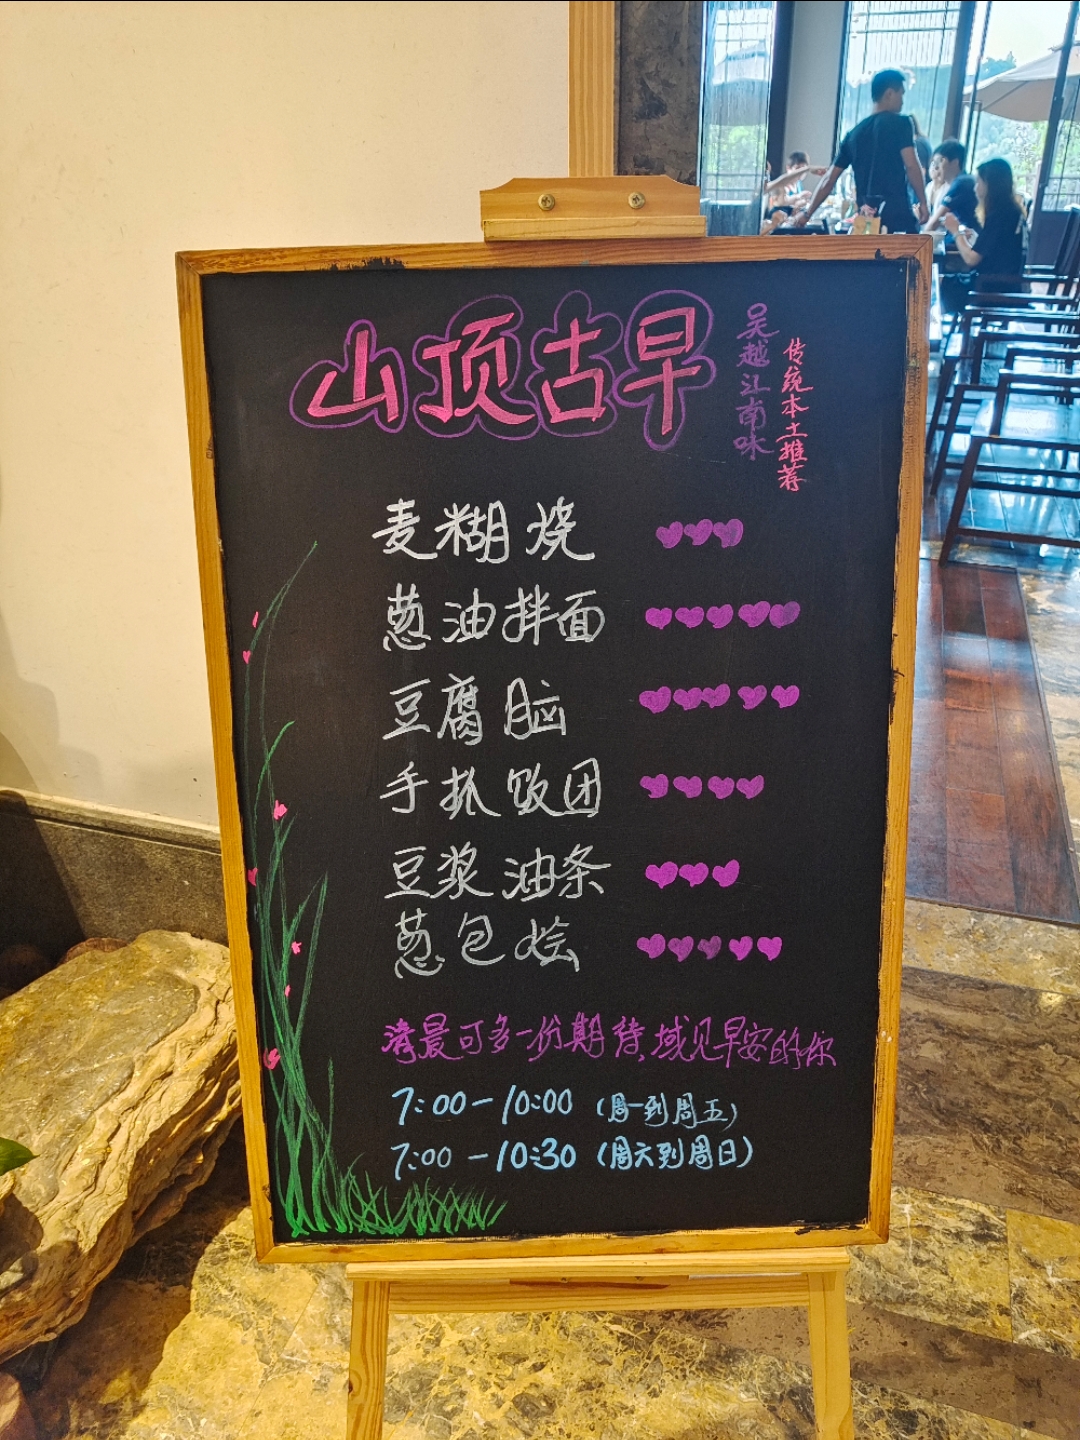 山顶古早
吴越江南味
传统本土推荐
麦糊烧
葱油拌面
豆腐脑
手抓饭团
豆浆油条
葱包烩
最可多一份期待,域见早安的你
7:00-10:00 (周一到周五)
7:00-10:30 (周六到周日)